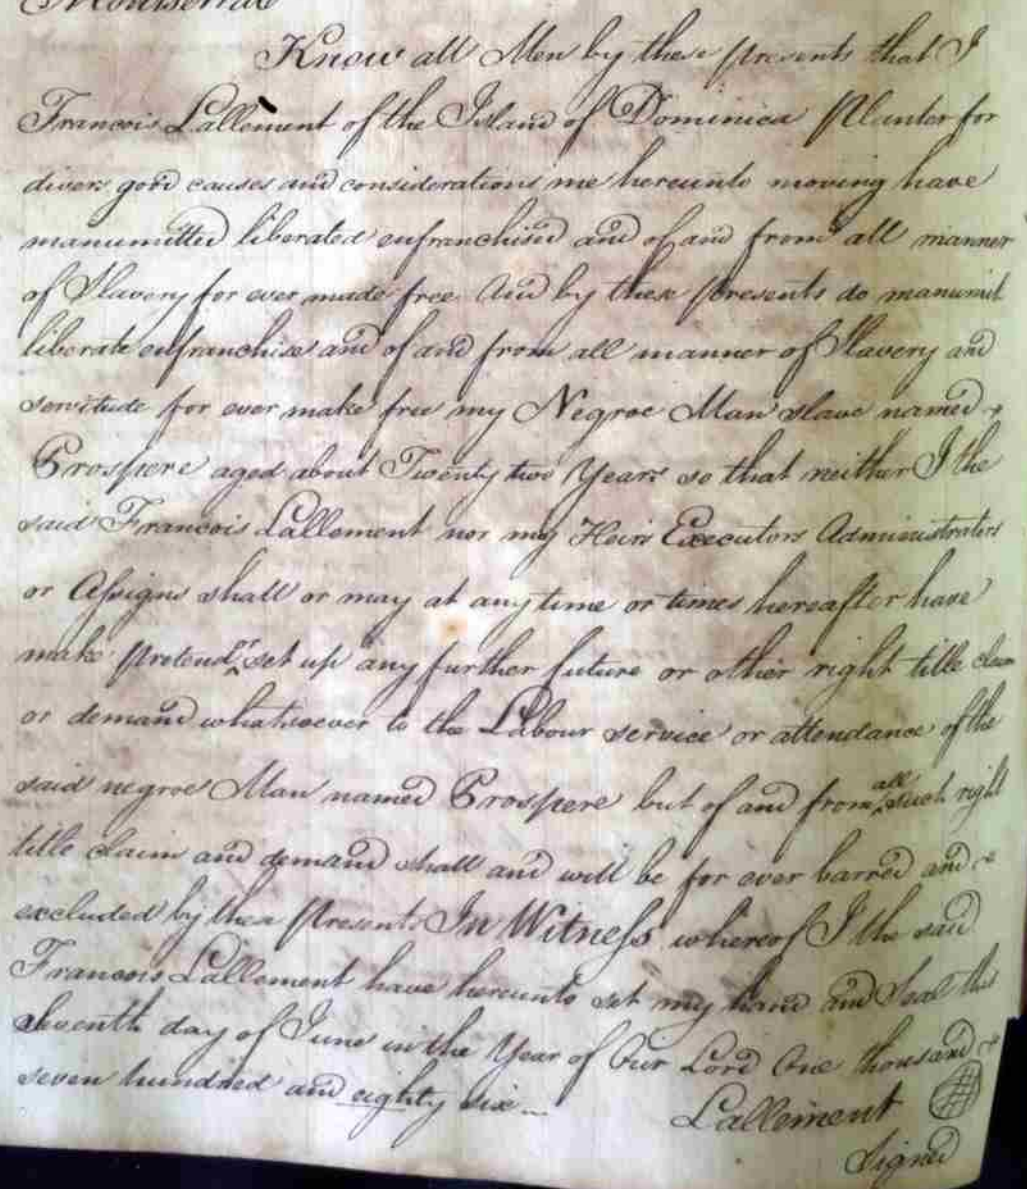 Montserrat
Know all Men by these presents that I
Francois Lallement of the Island of Dominica Planter for
divers good causes and considerations me hereunto moving have
manumitted liberated enfranchised and of and from all manner
of Slavery for ever made free And by these presents do manumit
liberate enfranchise and of and from all manner of Slavery and
servitude for ever make free my Negroe Man slave named
Prospere aged about Twenty two Years so that neither I the
said Francois Lallement nor my Heirs Executors Administrators
or Assigns shall or may at any time or times hereafter have
make pretend or set up any further future or other right title claim
or demand whatsoever to the Labour service or attendance of the
said negroe Man named Prospere but of and from all such right
title claim and demand shall and will be for ever barred and
excluded by these Presents In Witness whereof I the said
Francois Lallement have hereunto set my hand and Seal this
Seventh day of June in the Year of Our Lord One thousand
seven hundred and eighty six
Lallement
Signed